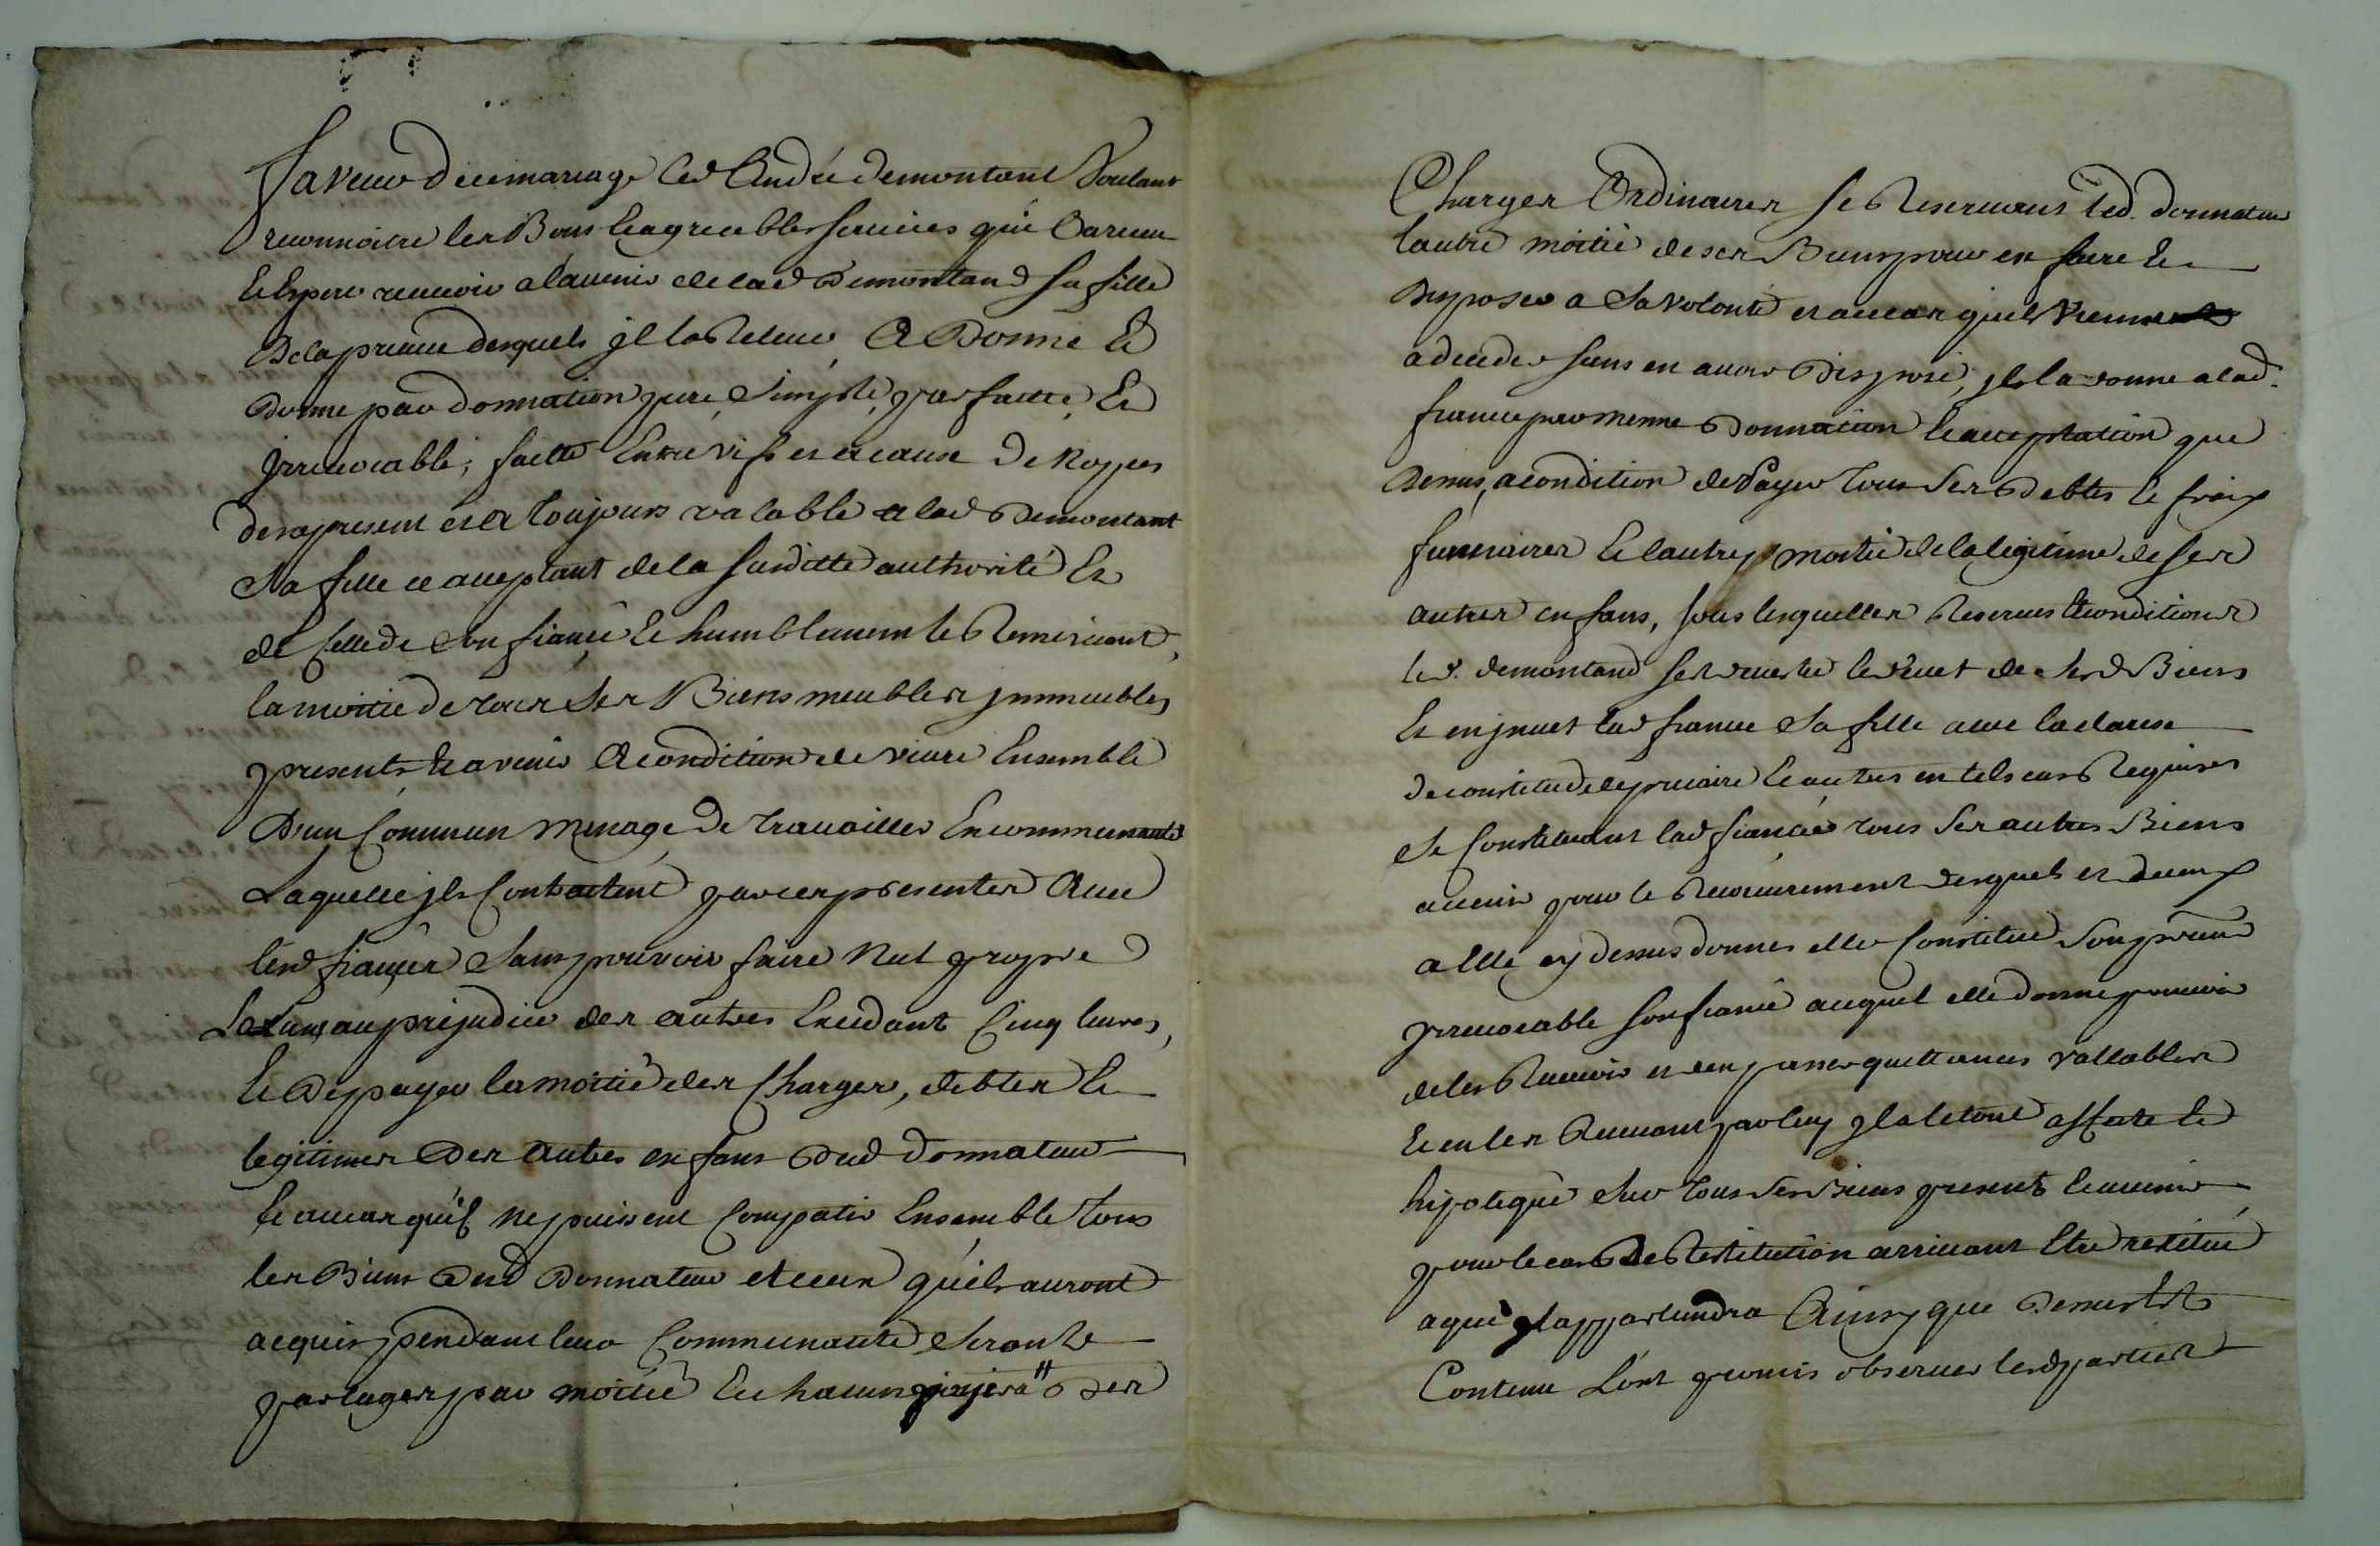 faveur de ce mariage led André demontant Voulant
reconnoitre les Bons et agreables services qu'il a receu
et Espere recevoir a l'avenir de lad Demontand sa fille
De la preuve desquels jl la Releve A Donné Et
Donne par donnation pure, simple, parfaitte, Et
jrrevocable, faitte Entre vifs et a cause De Nopces
des a present et a toujours valable a lad Demontant
sa fille ce acceptant de la susditte authorité Et
de Celle de son fiancé Et humblement le Remerciant,
la moitié de tous ses Biens meubles jmmeubles
presents et avenir A condition de vivre Ensemble
D'un Commun menage De travailler En communauté
Laquelle jls Contractent par ces presentes Avec
lesd fiancés sans pouvoir faire Nul propre
Les uns au prejudice des autres Excedant Cinq livres,
Et De payer la moitié des Charges, debtes Et
legitimes Des autres enfans Dud Donnateur
Et au cas qu'ils ne puissent Compatir Ensemble tous
les Biens Dud Donnateur et ceux qu'ils auront
acquis pendant leur Communauté seront
partages par moitié Et chacun Des
Charges Ordinaires se Reservant led. donnateur
l'autre moitié de ses Biens pour en faire Et
Disposer a sa volonté et au cas qu'il Vienne
a deceder sans en avoir Disposé, jl la donne a lad.
fiancée par meme Donnation et acceptation que
Dessus, a condition de Payer tous ses Debtes et fraix
funeraires Et l'autre moitié de la legitime de ses
autres enfans, sous lesquelles Reserves et conditions
led. demontand s'est devestu et devet de sesd Biens
Et en jnvet lad fiancée sa fille avec la clause
de constitut de precaire Et autres en tels cas Requises
se Constituant lad fiancée tous ses autres Biens
avenir pour le Recouvrement desquels et de ceux
a Elle cy dessus donnés elle Constitue son procur
jrrevocable son fiancé auquel elle donne pouvoir
de les Recevoir et d'en passer quittances vallables
Et en les Recevant par luy jl a le tout affecté Et
hipotequé sur tous ses Biens presents et avenir
pour le cas De Restitution arrivant Etre restitué
a qui jl appartiendra Ainsy que Dessus Est
Contenu L'ont promis observer lesd parties